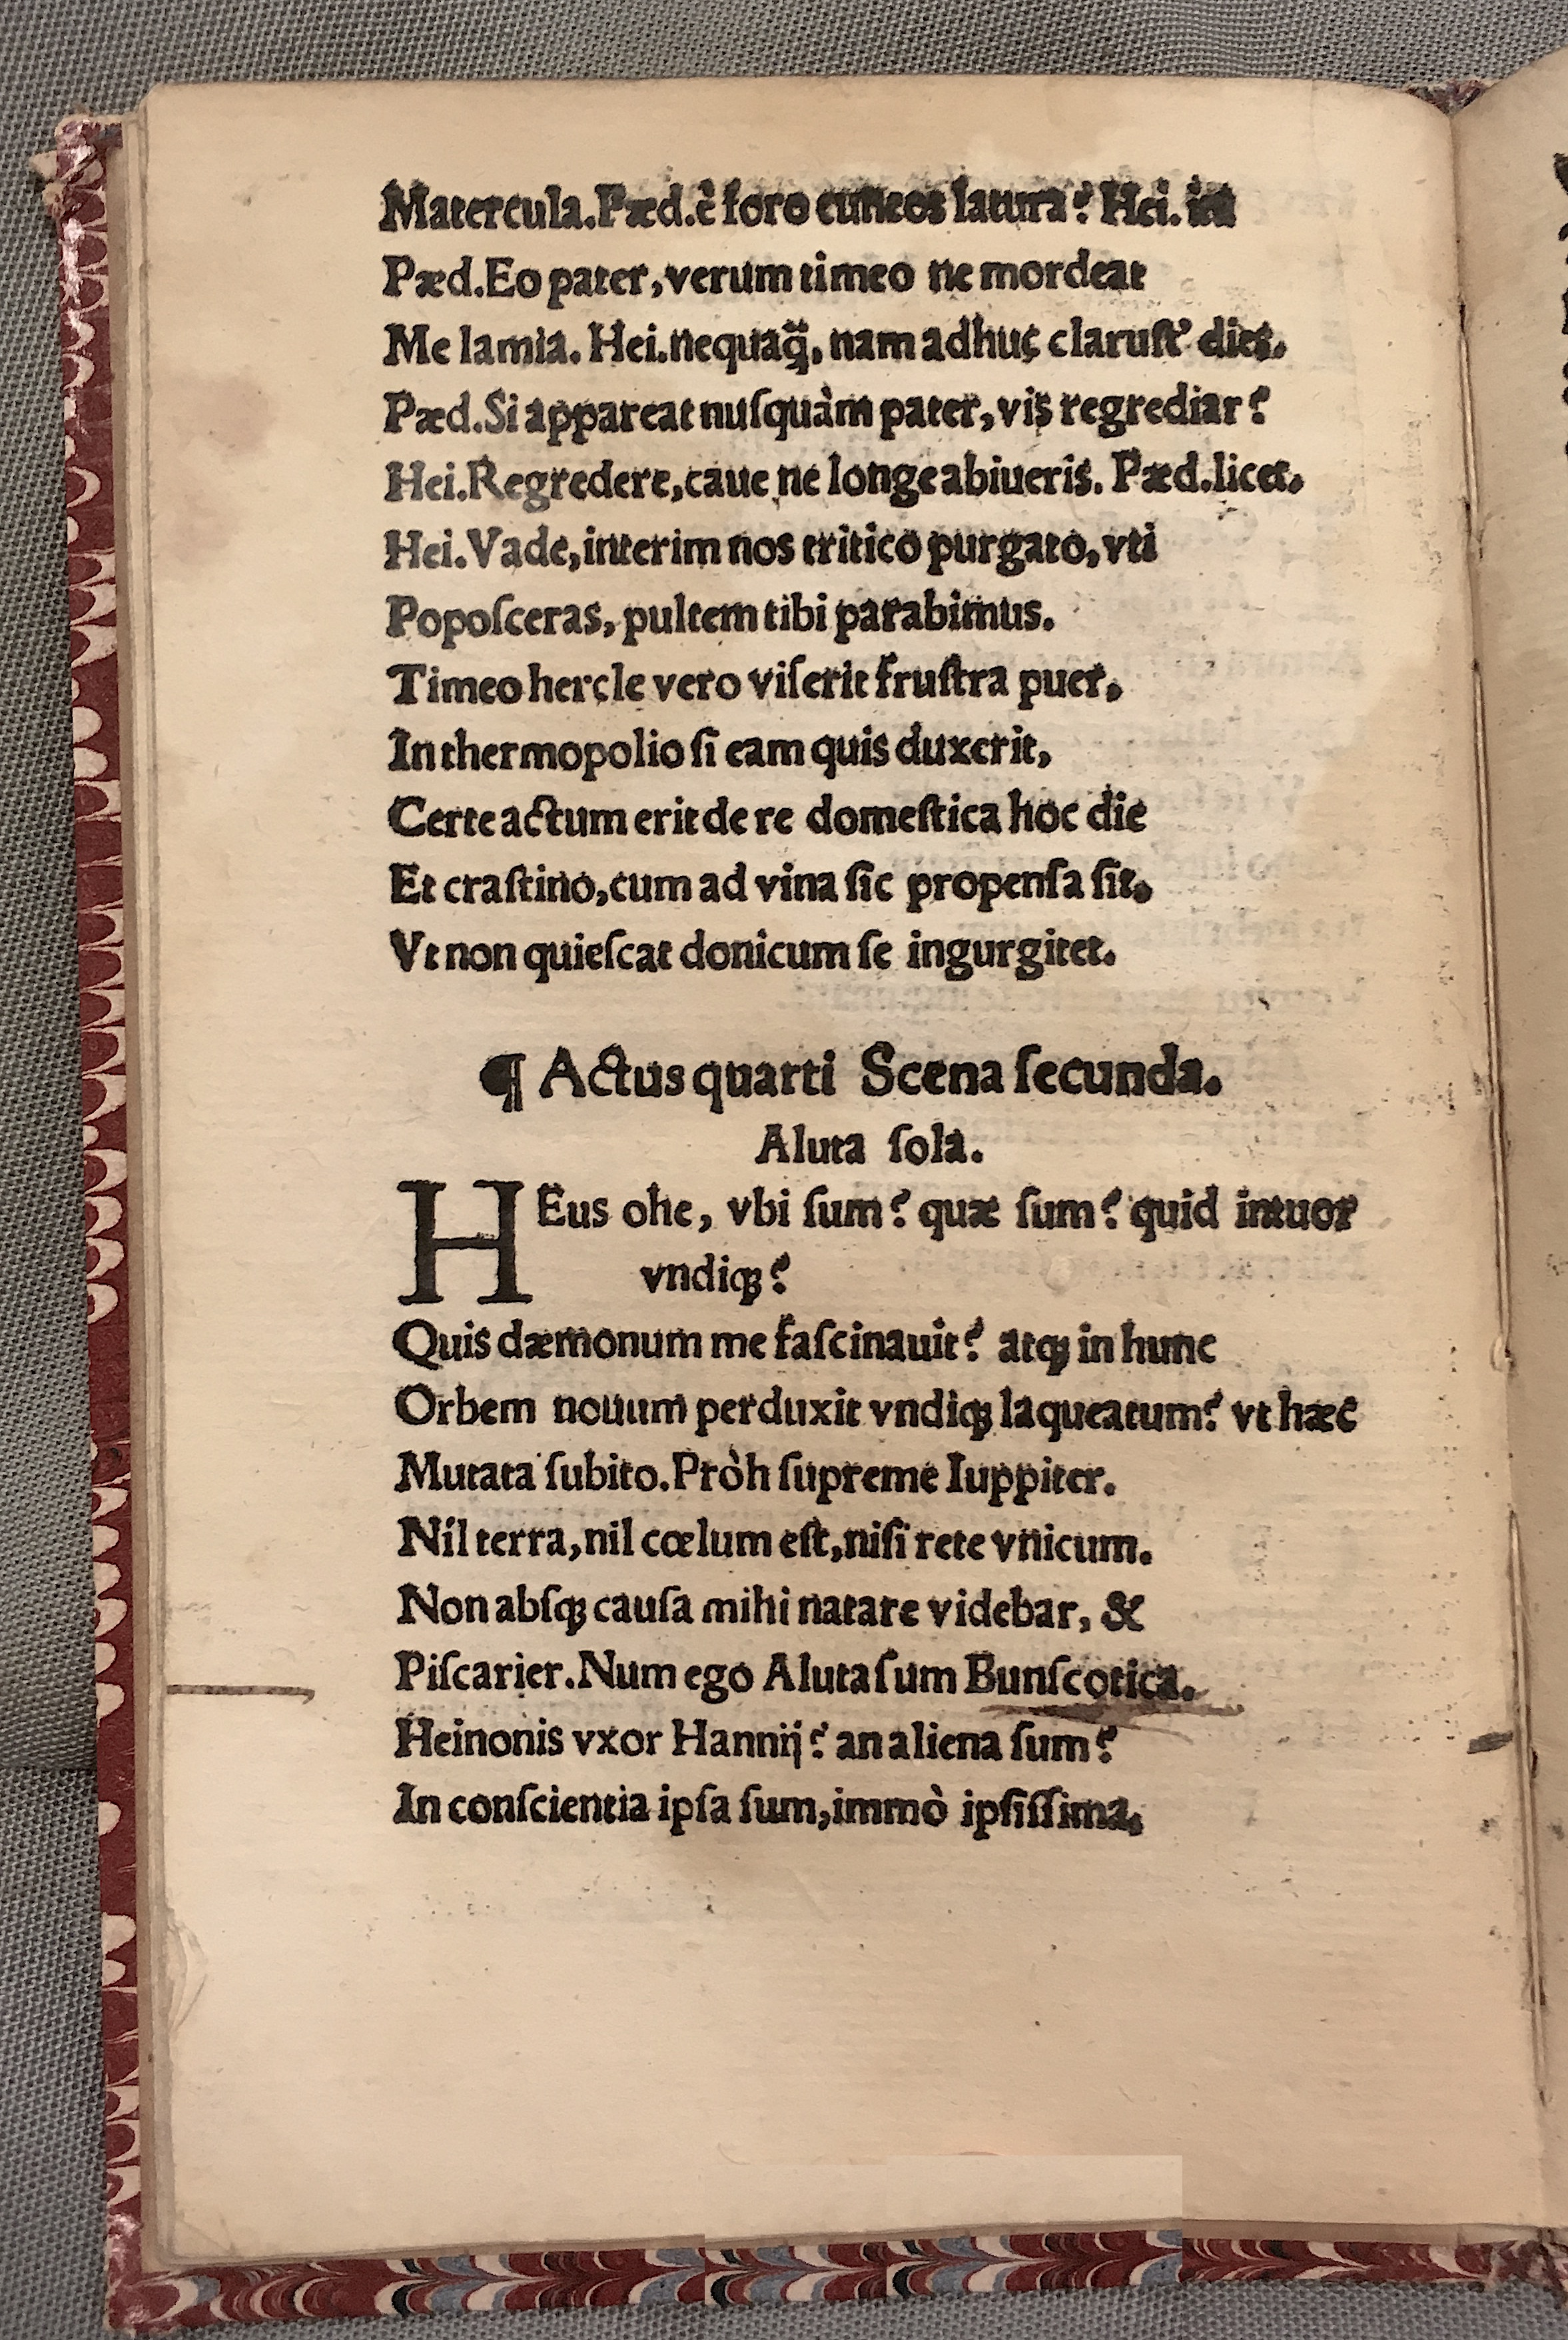 Matercula.Pæd.è foro cuneos latura? Hei. ita
Pæd.Eo pater,verum timeo ne mordeat
Me lamia. Hei.nequaq̃, nam adhuc claruſt’ dies.
Pæd.Si appareat nuſquàm pater,vis regrediar?
Hei.Regredere,caue ne longe abiueris. Pæd.licet.
Hei.Vade,interim nos tritico purgato,vti
Popoſceras,pultem tibi parabimus.
Timeo hercle vero viſerit fruſtra puer.
In thermopolio ſi eam quis duxerit,
Certe actum erit de re domeſtica hoc die
Et craſtino,cum ad vina ſic propenſa ſit.
Vt non quieſcat donicum ſe ingurgitet.
¶ Actus quarti Scena ſecunda.
Aluta ſola.
HEus ohe, vbi ſum? quæ ſum? quid intuor
vndiqꝫ?
Quis dæmonum me faſcinauit? atqꝫ in hunc
Orbem nouum perduxit vndiqꝫ laqueatum? vt hæc
Mutata ſubito.Pròh ſupreme Iuppiter.
Nil terra,nil cœlum eſt,niſi rete vnicum.
Non abſqꝫ cauſa mihi natare videbar, &
Piſcarier.Num ego Aluta ſum Bunſcotica.
Heinonis vxor Hannij? an aliena ſum?
In conſcientia ipſa ſum,immò ipſiſſima.